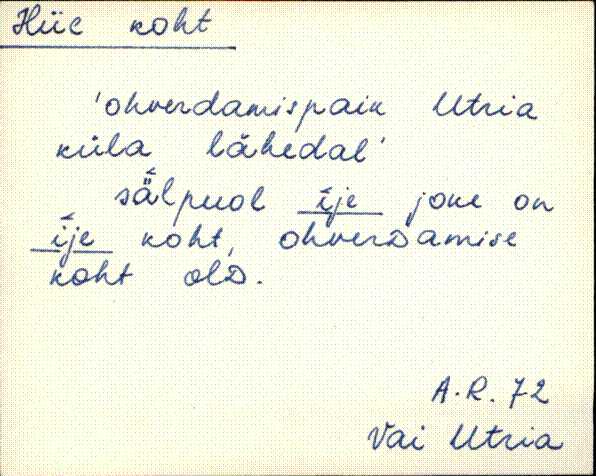 Hiie koht
'ohverdamispaik Utria
küla lähedal'
sä́lpuol íje joue on
íje koht, ohverdamise
koht old.
A.R. 72
Vai Utria